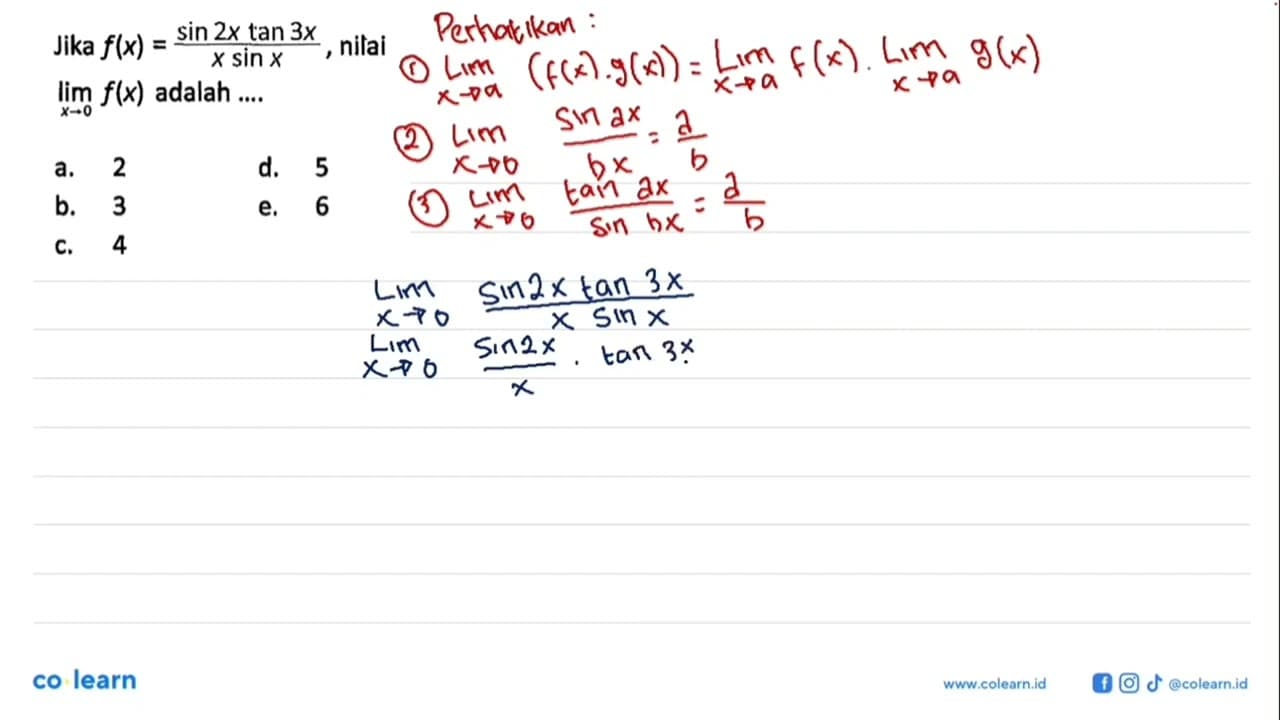 Jika f(x) = sin 2x tan 3x / x sin x , nilai
lim x→0 f(x) adalah ....
a. 2
b. 3
c. 4
d. 5
e. 6
Perhatikan :
① Lim x→a (f(x).g(x)) = Lim x→a f(x). Lim x→a g(x)
② Lim x→0 sin ax / bx = a / b
③ Lim x→0 tan ax / sin bx = a / b
Lim x→0 sin2x tan 3x / x sin x
Lim x→0 sin2x / x . tan 3x
co learn
www.colearn.id
@colearn.id